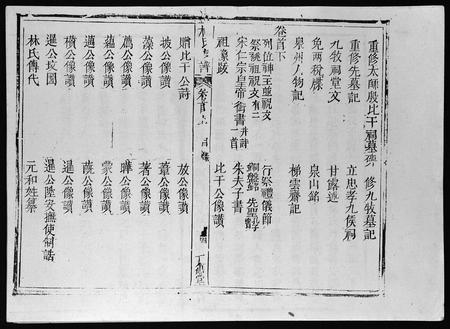 重修太師殷比干祠墓碑 修九牧墓記
重修先墓記 立忠孝九侯祠
九牧祠堂文 甘露述
免兩稅牒 泉山銘
泉州人物記 梯雲齋記
卷首下
列位神主龕祝文 行祭禮儀節
祭祧祖祝文有二 銅盤銘 先聖
宋仁宗皇帝御書并詩一首 朱夫子書
祖像跋 比干公像讚
林氏譜 卷首 目錄
贈比干公詩 放公像讚
坡公像讚 葦公像讚
藻公像讚 著公像讚
薦公像讚 曄公像讚
蘊公像讚 蒙公像讚
邁公像讚 蔇公像讚
橫公像讚 暹公像讚
暹公墳圖 暹公陞安撫使制誥
林氏傳代 元和姓纂